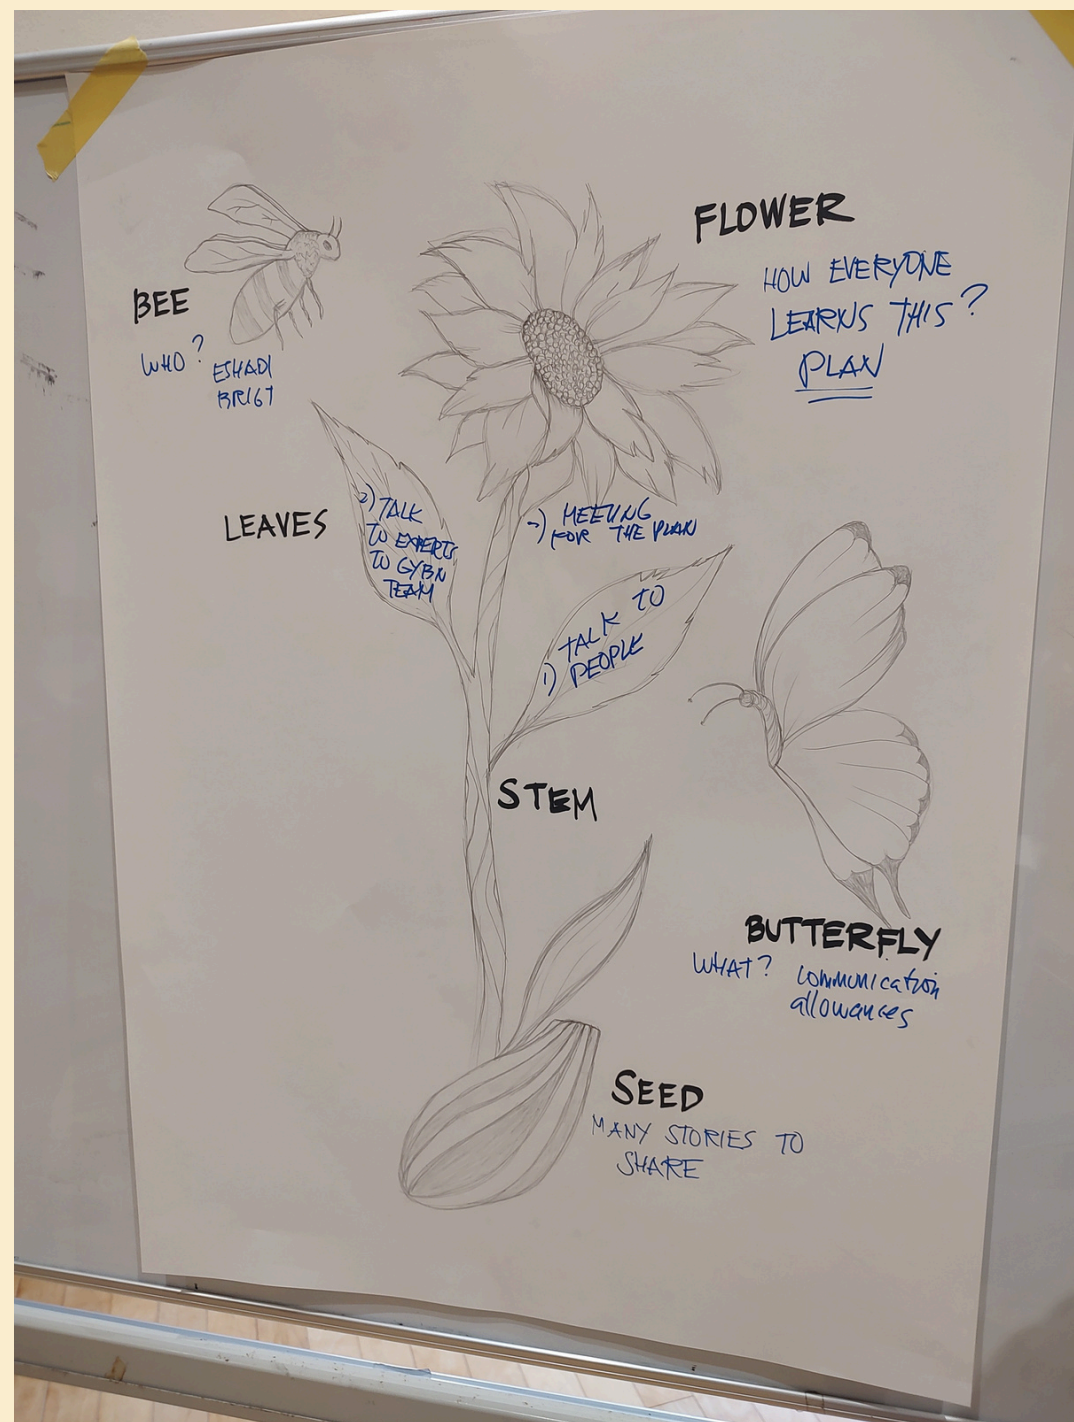 FLOWER
HOW EVERYONE
LEARNS THIS?
PLAN
BEE
WHO?
ESHADI
BRIGT
LEAVES
2) TALK
TO EXPERTS
TO GYBN
TEAM
MEETING
FOR THE PLAN
1) TALK TO
PEOPLE
STEM
BUTTERFLY
WHAT? communication
allowances
SEED
MANY STORIES TO
SHARE